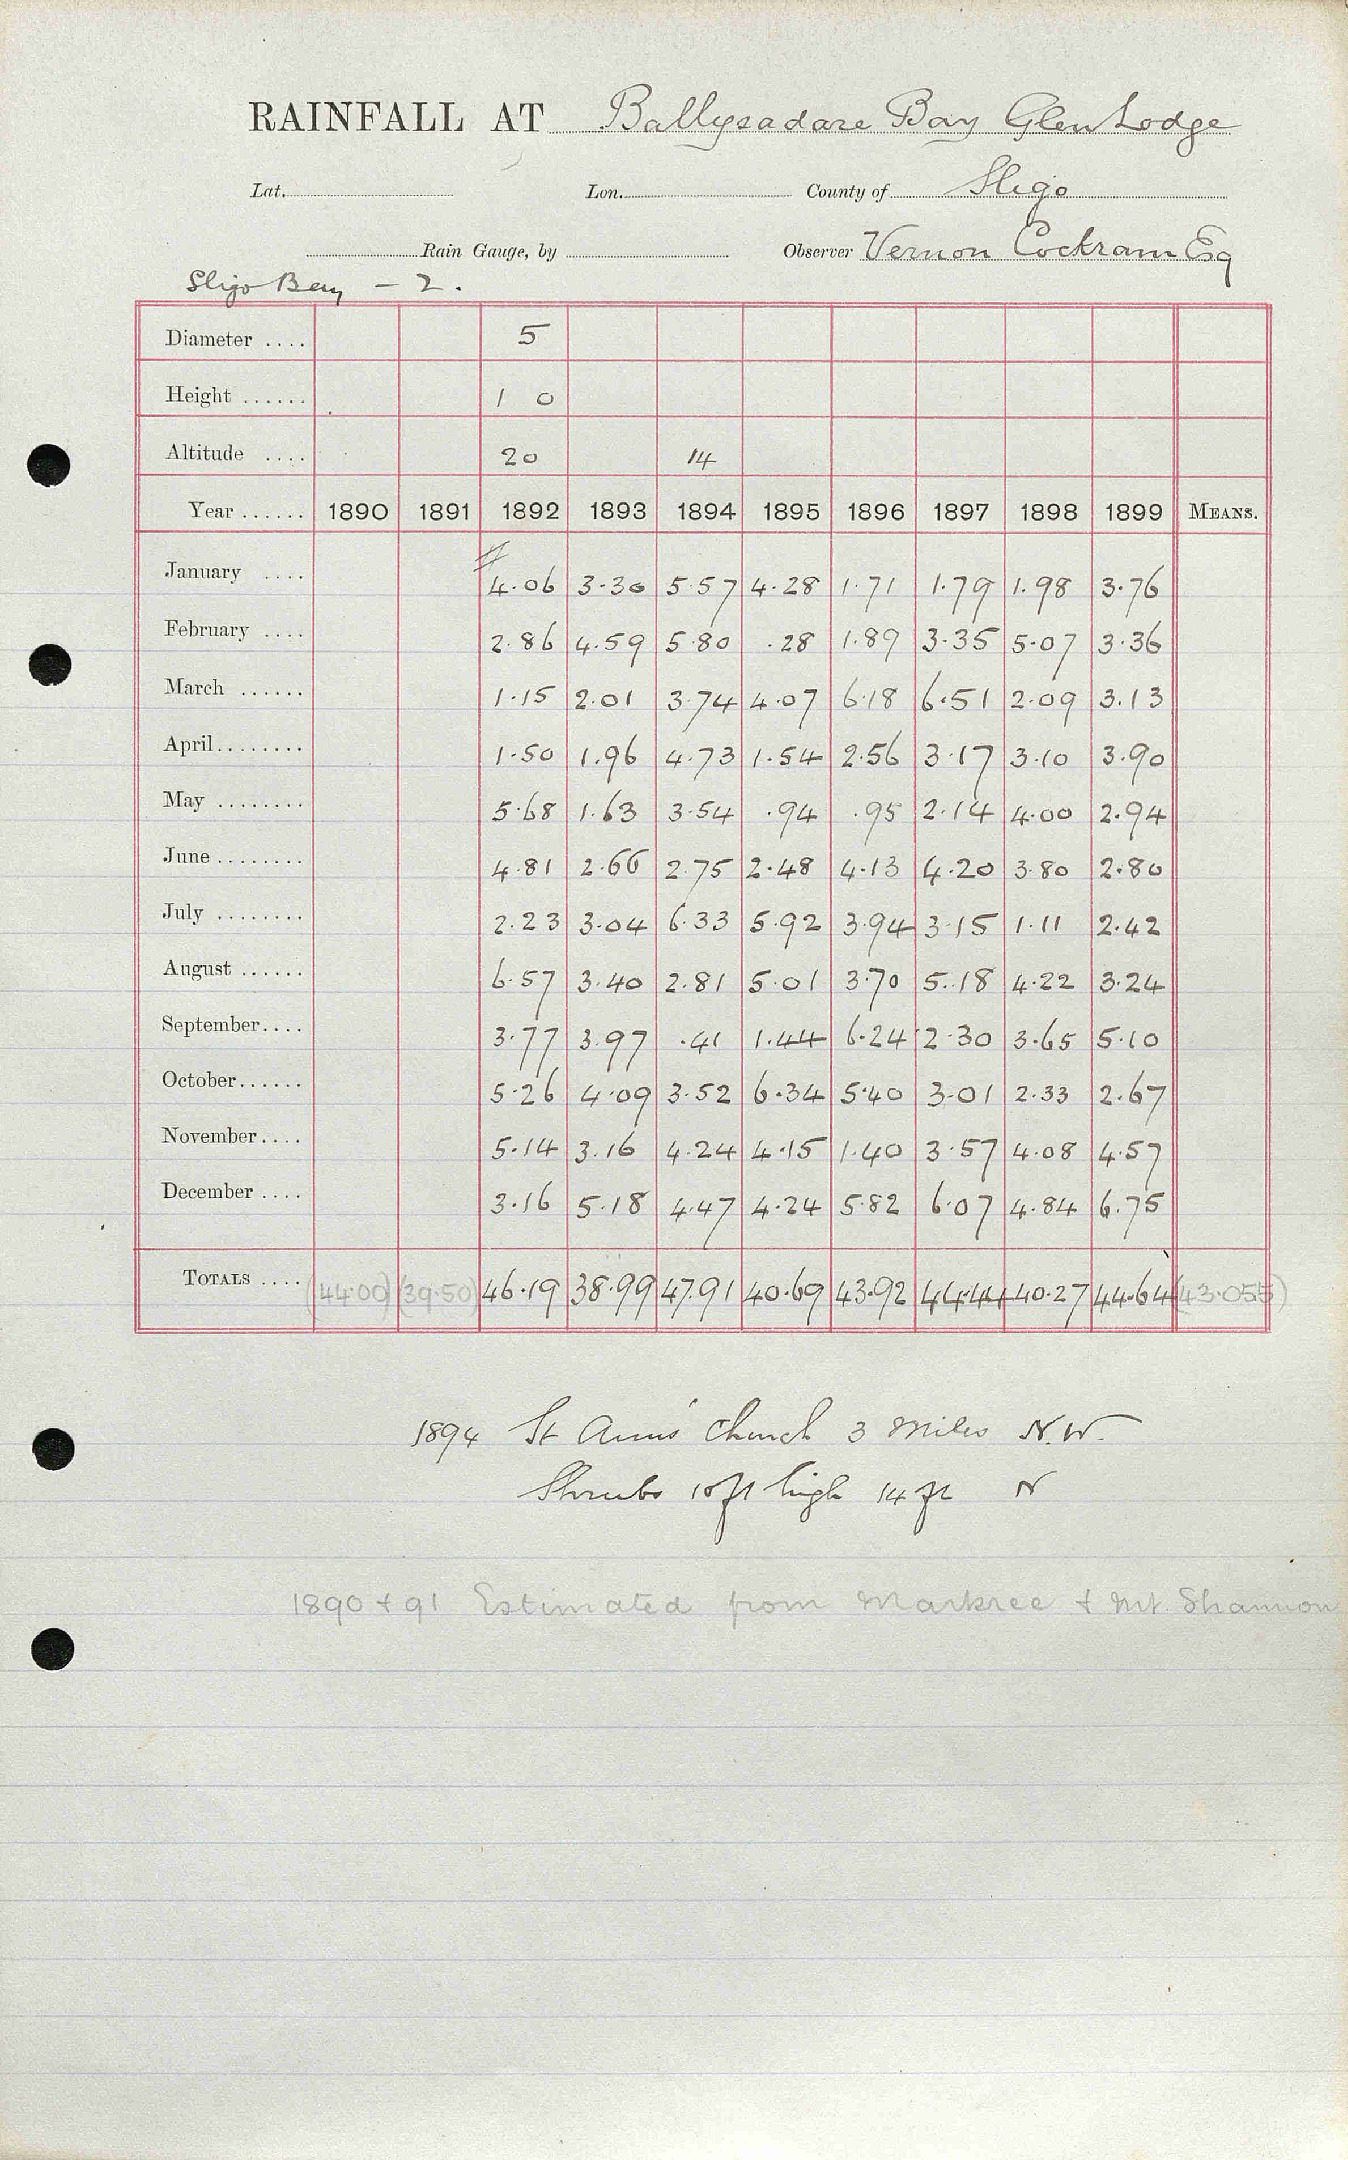 RAINFALL AT Ballysadare Bay Glen Lodge
Lat. Lon. County of Sligo
Rain Gauge, by Observer Vernon Cockram Esq
Sligo Bay - 2.
Diameter .... 5
Height ...... 1 0
Altitude .... 20 14
Year ...... 1890 1891 1892 1893 1894 1895 1896 1897 1898 1899 MEANS.
January .... 4.06 3.30 5.57 4.28 1.71 1.79 1.98 3.76
February .... 2.86 4.59 5.80 .28 1.89 3.35 5.07 3.36
March ...... 1.15 2.01 3.74 4.07 6.18 6.51 2.09 3.13
April........ 1.50 1.96 4.73 1.54 2.56 3.17 3.10 3.90
May ........ 5.68 1.63 3.54 .94 .95 2.14 4.00 2.94
June ........ 4.81 2.66 2.75 2.48 4.13 4.20 3.80 2.80
July ........ 2.23 3.04 6.33 5.92 3.94 3.15 1.11 2.42
August ...... 6.57 3.40 2.81 5.01 3.70 5.18 4.22 3.24
September.... 3.77 3.97 .41 1.44 6.24 2.30 3.65 5.10
October...... 5.26 4.09 3.52 6.34 5.40 3.01 2.33 2.67
November.... 5.14 3.16 4.24 4.15 1.40 3.57 4.08 4.57
December .... 3.16 5.18 4.47 4.24 5.82 6.07 4.84 6.75
TOTALS .... (44.00) (39.50) 46.19 38.99 47.91 40.69 43.92 44.44 40.27 44.64 (43.055)
1894 St Anns' Church 3 Miles N.W.
Shrubs 10ft high 14 ft N
1890 + 91 Estimated from Markree + Mt. Shannon